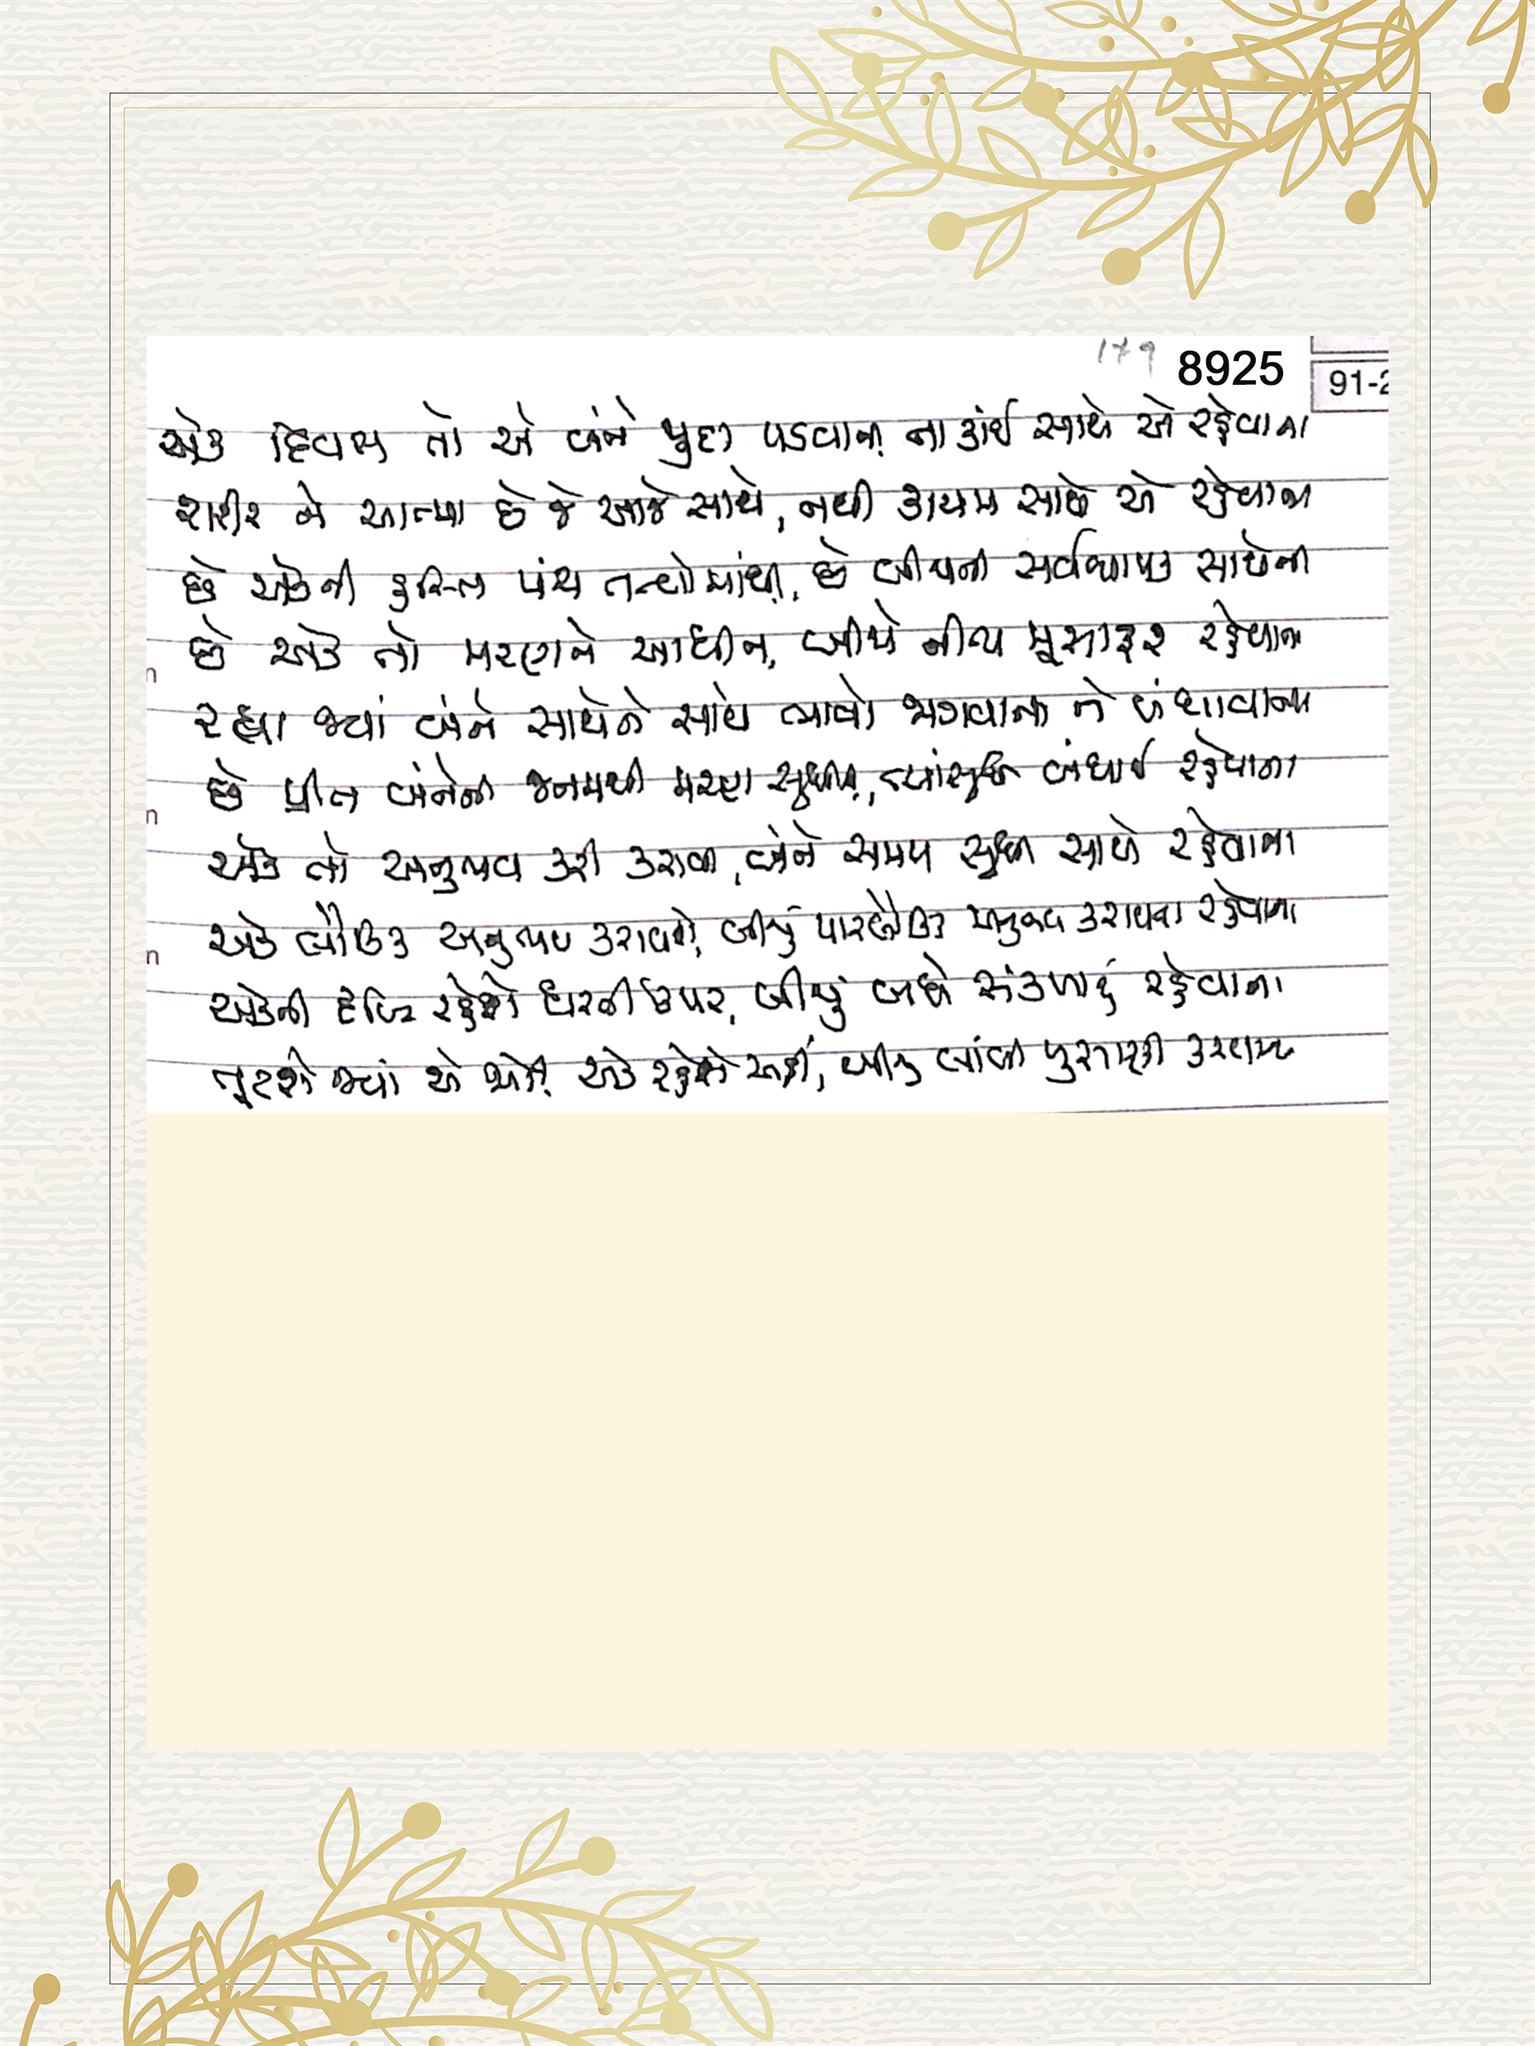 179 8925
91-2
એક દિવસ તો એ બંને જુદા પડવાના, ના કાંઈ સાથે એ રહેવાના
શરીર ને આત્મા છે જે આજે સાથે, નથી કાયમ સાથે એ રહેવાના
છે એકની હસ્તિ પંચ તત્ત્વોમાંથી, છે બીજાની સર્વવ્યાપક સાથેની
છે એક તો મરણને આધીન, બીજો નીત્ય મુસાફર રહેવાના
રહ્યા જ્યાં બંને સાથેને સાથ ભાવો જગવાના ને
છે પ્રીત બંનેની જનમથી મરણ સુધીની, ત્યાં સુધી બંધાઈ રહેવાના
એક તો અનુભવ કરી કરાવી, બંને સમય સુધી સાથે રહેવાના
એક લૌકિક અનુભવ કરાવશે, બીજું પારલૌકિક અનુભવ કરાવતા રહેવાના
એકની દૃષ્ટિ રહેશે ધરતી ઉપર, બીજું બધે સંકળાઈ રહેવાના
તૂટશે જ્યાં એ જોડી, એક રહેશે અહીં, બીજુ લાંબી મુસાફરી કરવાના